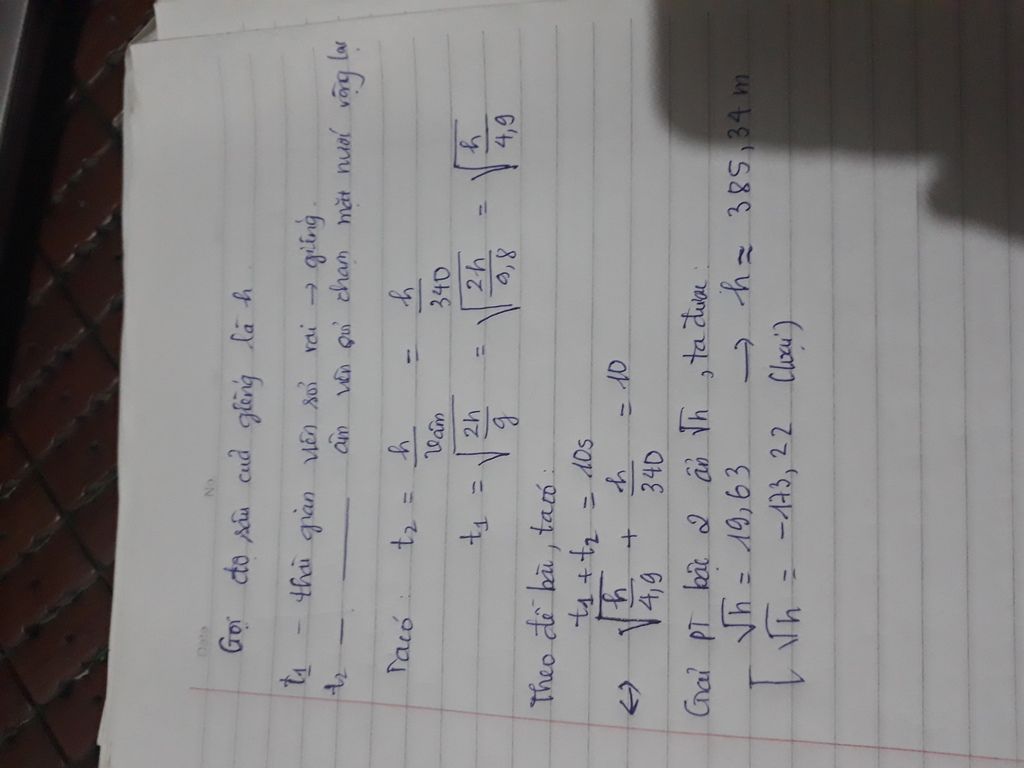 Gọi độ sâu của giếng là h.
t₁ - thời gian viên sỏi rơi → giếng.
t₂ — ——— âm viên sỏi chạm mặt nước vọng lại
Ta có: t₂ = h/vâm = h/340
t₁ = √(2h/g) = √(2h/9,8) = √(h/4,9)
Theo đề bài, ta có:
t₁ + t₂ = 10s
<-> √(h/4,9) + h/340 = 10
Giải PT bậc 2 ẩn √h, ta được:
[ √h = 19,63 → h ≈ 385,34 m
√h = -173,22 (loại)